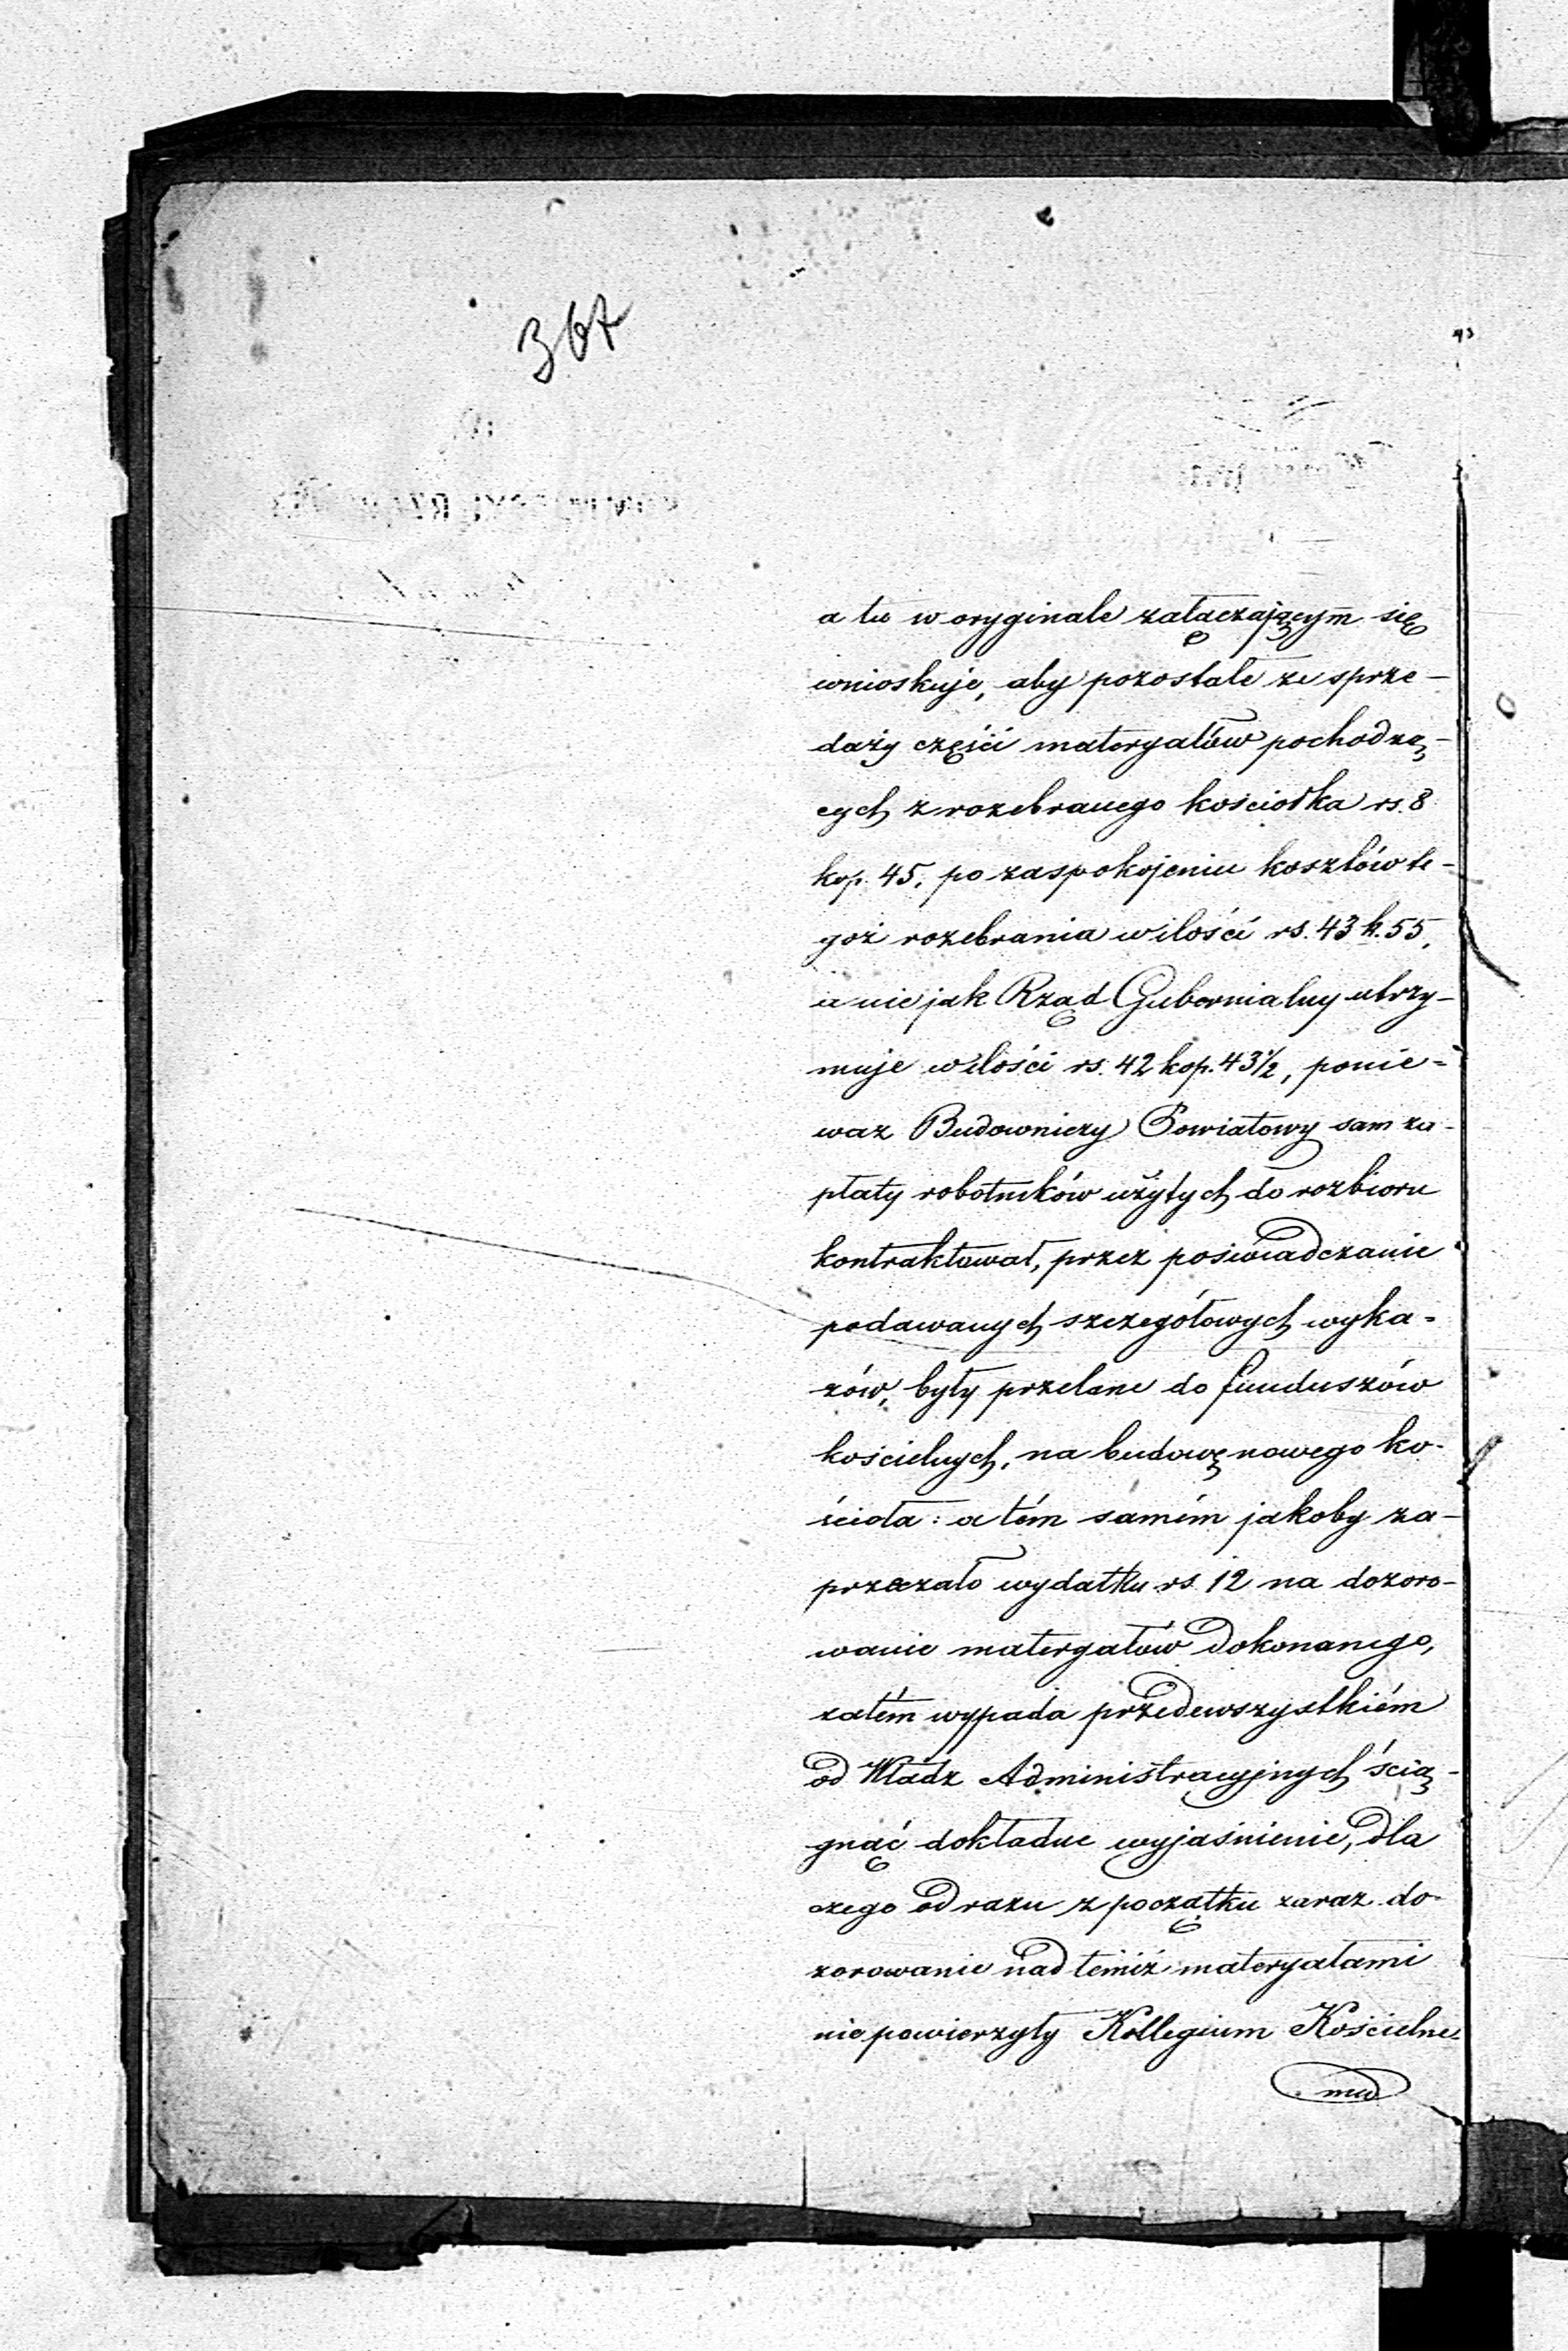 367
a tu w oryginale załączającym się
wnioskuje, aby pozostałe ze sprze-
daży części materyałów pochodzą-
cych z rozebranego kościołka rs. 8
kop. 45, po zaspokojeniu kosztów te-
goż rozebrania w ilości rs. 43 k. 55,
a nie jak Rząd Gubernialny utrzy-
muje w ilości rs. 42 kop. 43½, ponie-
waż Budowniczy Powiatowy sam za-
płaty robotników użytych do rozbioru
kontraktował, przez poświadczanie
podawanych szczegółowych wyka-
zów, były przelane do funduszów
kościelnych, na budowę nowego ko-
ścioła: a tém samém jakoby za-
przeczało wydatku rs. 12 na dozoro-
wanie materyałów dokonanego,
zatém wypada przedewszystkiém
od Władz Administracyjnych ścią-
gnąć dokładne wyjaśnienie, dla
czego od razu z początku zaraz do-
zorowanie nad temiż materyałami
nie powierzyły Kollegium Kościelne-
mu